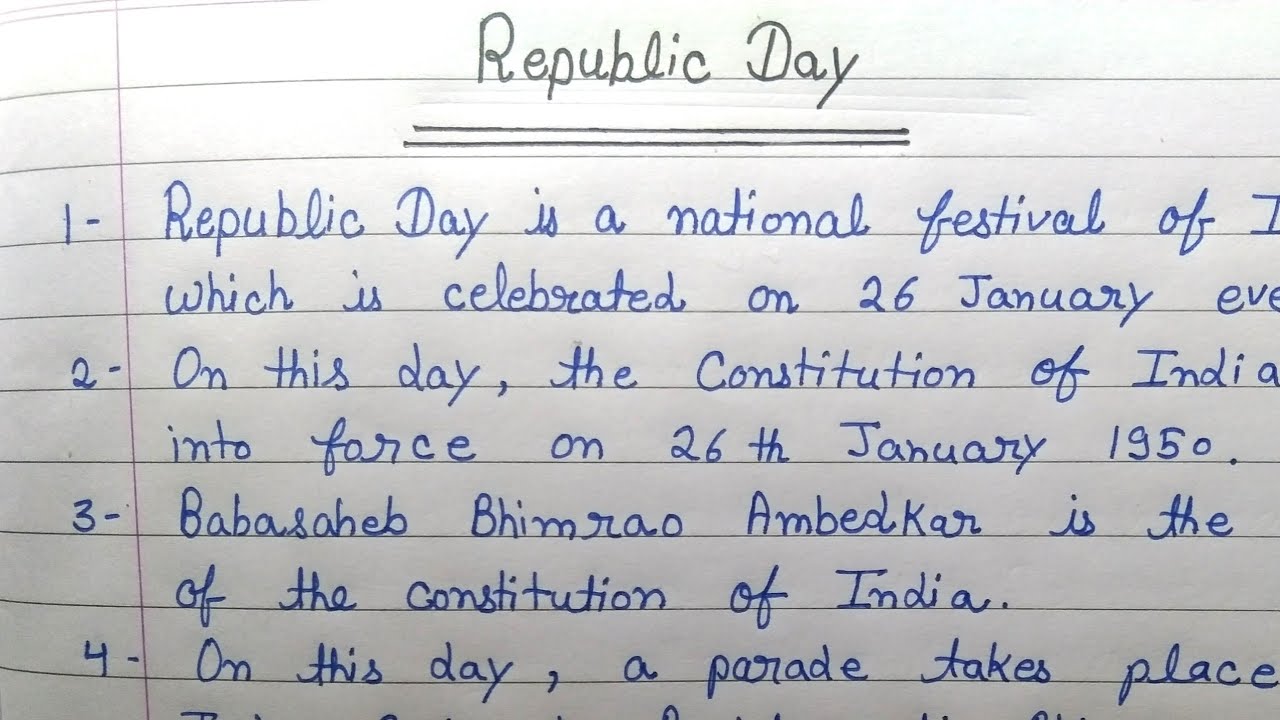 Republic Day
1- Republic Day is a national festival of I
which is celebrated on 26 January eve
2- On this day, the Constitution of India
into force on 26th January 1950.
3- Babasaheb Bhimrao Ambedkar is the
of the constitution of India.
4- On this day, a parade takes place